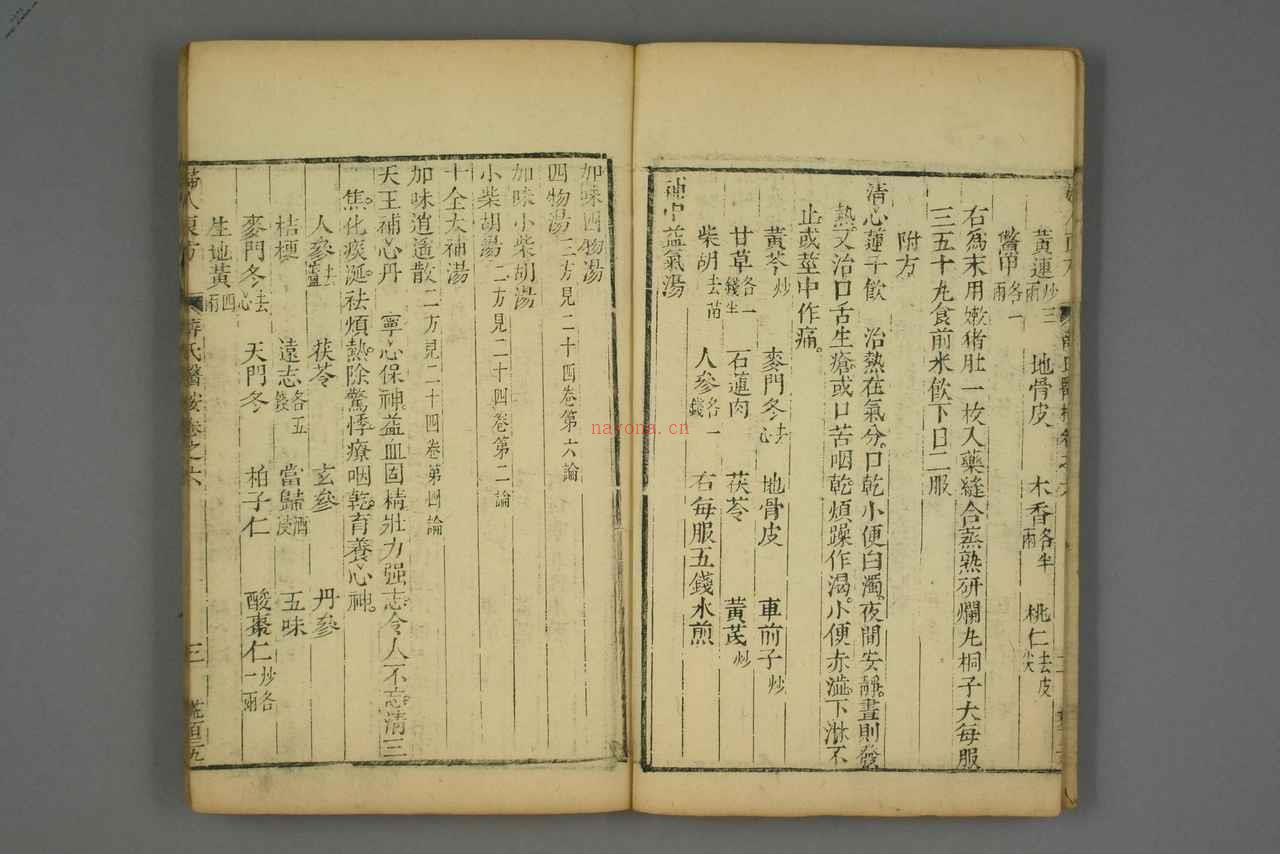 黃連炒三兩 地骨皮 木香各半兩 桃仁去皮尖
鱉甲各一兩
右爲末用嫩猪肚一枚入藥縫合蒸熟研爛丸桐子大每服
三五十丸食前米飲下日二服
附方
清心蓮子飲 治熱在氣分。口乾小便白濁。夜間安靜。晝則發
熱。又治口舌生瘡。或口苦咽乾煩躁作渴。小便赤澁。下淋不
止或莖中作痛。
黃芩炒 麥門冬去心 地骨皮 車前子炒
甘草各一錢半 石蓮肉 茯苓 黃芪炒
柴胡去苗 人參各一錢 右每服五錢水煎
補中益氣湯
加味四物湯
四物湯三方見二十四卷第六論
加味小柴胡湯
小柴胡湯二方見二十四卷第二論
十全大補湯
加味逍遙散二方見二十四卷第四論
天王補心丹 寧心保神。益血固精壯力强志。令人不忘。清三
焦。化痰涎。祛煩熱。除驚悸。療咽乾。育養心神。
人參去蘆 茯苓 玄參 丹參
桔梗 遠志各五錢 當歸酒浸 五味
麥門冬去心 天門冬 柏子仁 酸棗仁炒各一兩
生地黃四兩
婦人良方 薛氏醫按卷之六 三
nayona.cn